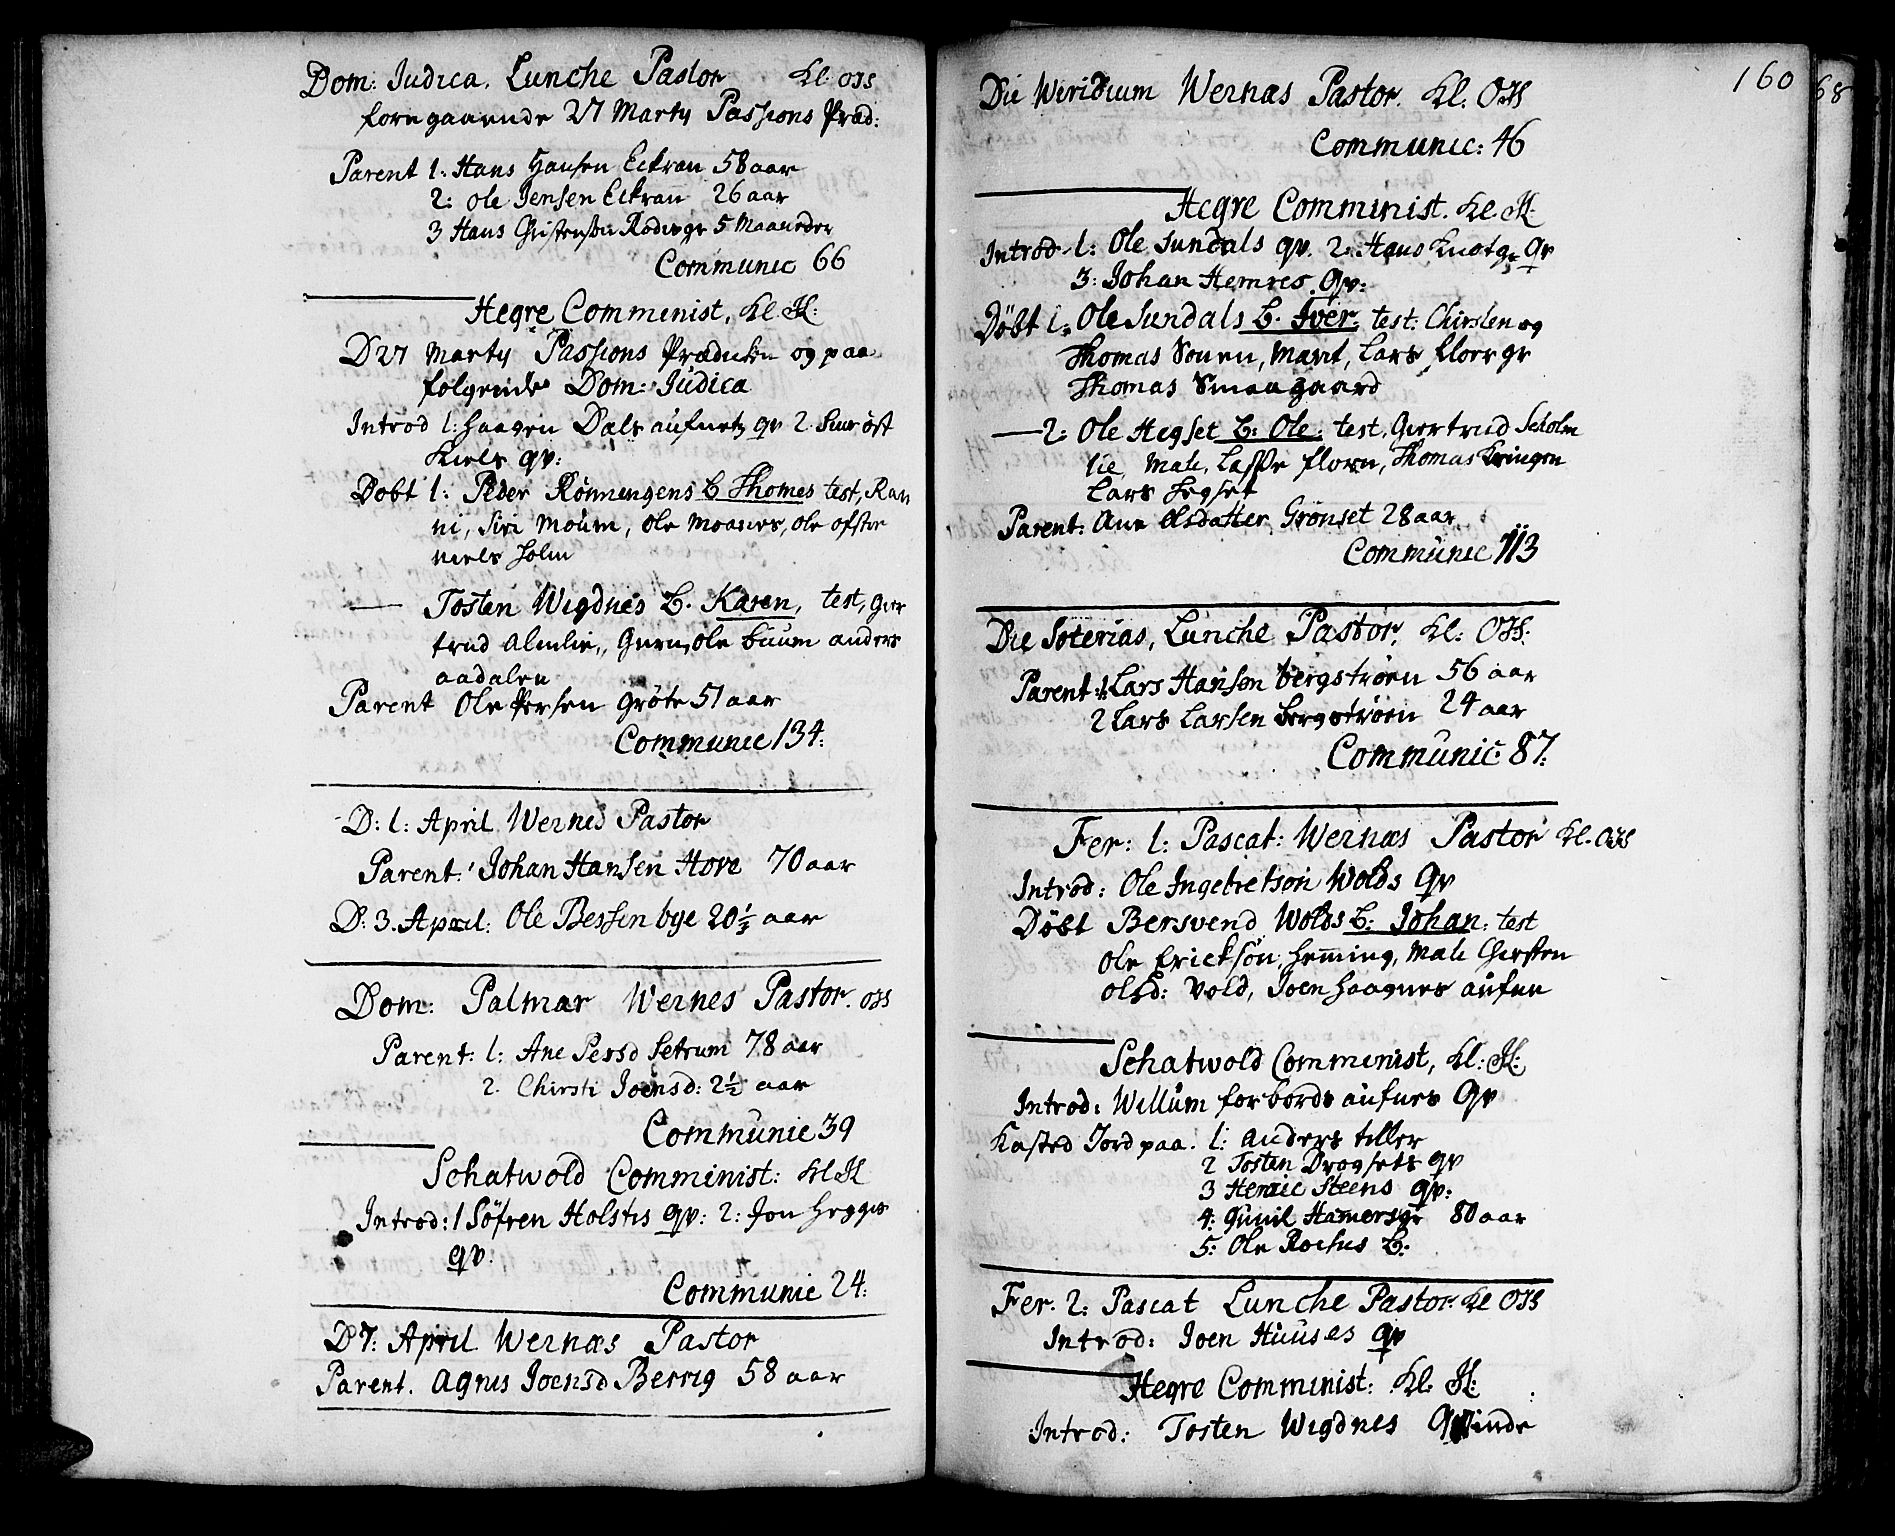 Dom: Iudica. Lunche Pastor Kl. oss
foregaaende 27 Marty Passions Præd:
Parent 1: Hans Hansen Eckran 58 aar
2: Ole Jensen Eckran 26 aar
3 Hans Christensen Rødergr 5 Maaneder
Communic 66
Hegre Comminist, Kl. H:
D 27 Marty Passions Prædicken og paa
folgende Dom: Iudica
Introd 1: Haagen Dals aufnets qv 2. Siur øst
Kiels qv:
Døbt 1: Peder Rønningens B Thomes test, Ran
ni, Siri Moum, Ole Moanes, Ole ofster
Niels Holm
— Tosten Wigdnes B. Karen, test, Gier
trud Almlie, Guru, Ole Buum anders
aadalen
Parent Ole Persen Grøte 51 aar
Communic 134:
D: 1: April Wernes Pastor
Parent: Johan Hansen Hove 70 aar
D: 3. April: Ole Bessen bye 20½ aar
Dom: Palmar Wernes Pastor. oss
Parent: 1: Ane Persd Setrum 78 aar
2. Chirsti Joensd: 2½ aar
Communic 39
Schatwold Comminist: Kl H
Introd: 1 Søfren Holstis qv: 2: Jon Hegges
qv:
Communic 24:
D 7: April Wernæs Pastor
Parent. Agnis Joensd Berrig 58 aar
160
68
Die Weridium Wernæs Pastor. Kl: Oss
Communic: 46
Hegre Comminist. Kl. H:
Introd 1: Ole Sundals qv. 2: Hans Knotg. qv
3: Johan Hemres qv:
Døbt 1: Ole Sundals B. Iver: test: Chirsten og
Thomas Souen, Marit, Lars floergr
Thomas Smaagaard
—2: Ole Hegset B: Ole: test, Giertrud Scholm
lie Mali, Lasse floren, Thomas Kringen
Lars Hegset
Parent: Ane Elsdatter Grønset 28 aar
Communic 113
Die Soterias, Lunche Pastor, Kl: Oss:
Parent: 1: Lars Hansen bergstrøen 56 aar
2 Lars Larsen bergstrøen 24 aar
Communic: 87:
Fer: 1: Pascat: Wernæs Pastor Kl. Oss
Introd: Ole Ingebretson Wolds qv
Døbt Bersvend Wolds B: Johan: test
Ole Erickson, Heming, Mali Chirsten
Olsd: Vold, Joen Haagnes aufne
Schatwold Comminist, Kl: H:
Introd: Willum forbords aufnes qv
Kasted Jord paa. 1: Anders tiller
2 Tosten Drogsets qv
3 Henric Steens qv:
4: Gunil Hamersgr 80 aar
5: Ole Roesus B:
Fer. 2: Pascat Lunche Pastor: Kl Oss
Introd: Joen Huuses qv
Hegre Comminist: Kl. H:
Introd: Tosten Wigdnes Qvinde